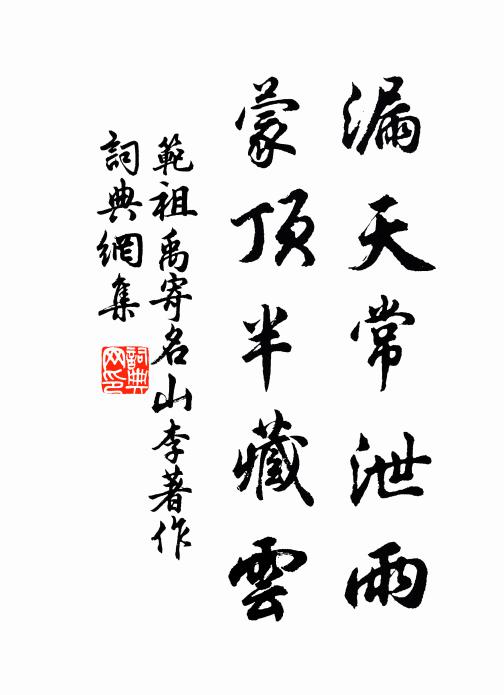 漏天常泄雨
蒙頂半藏雲
範祖禹寄名山李著作
詞典網集
詞典网印